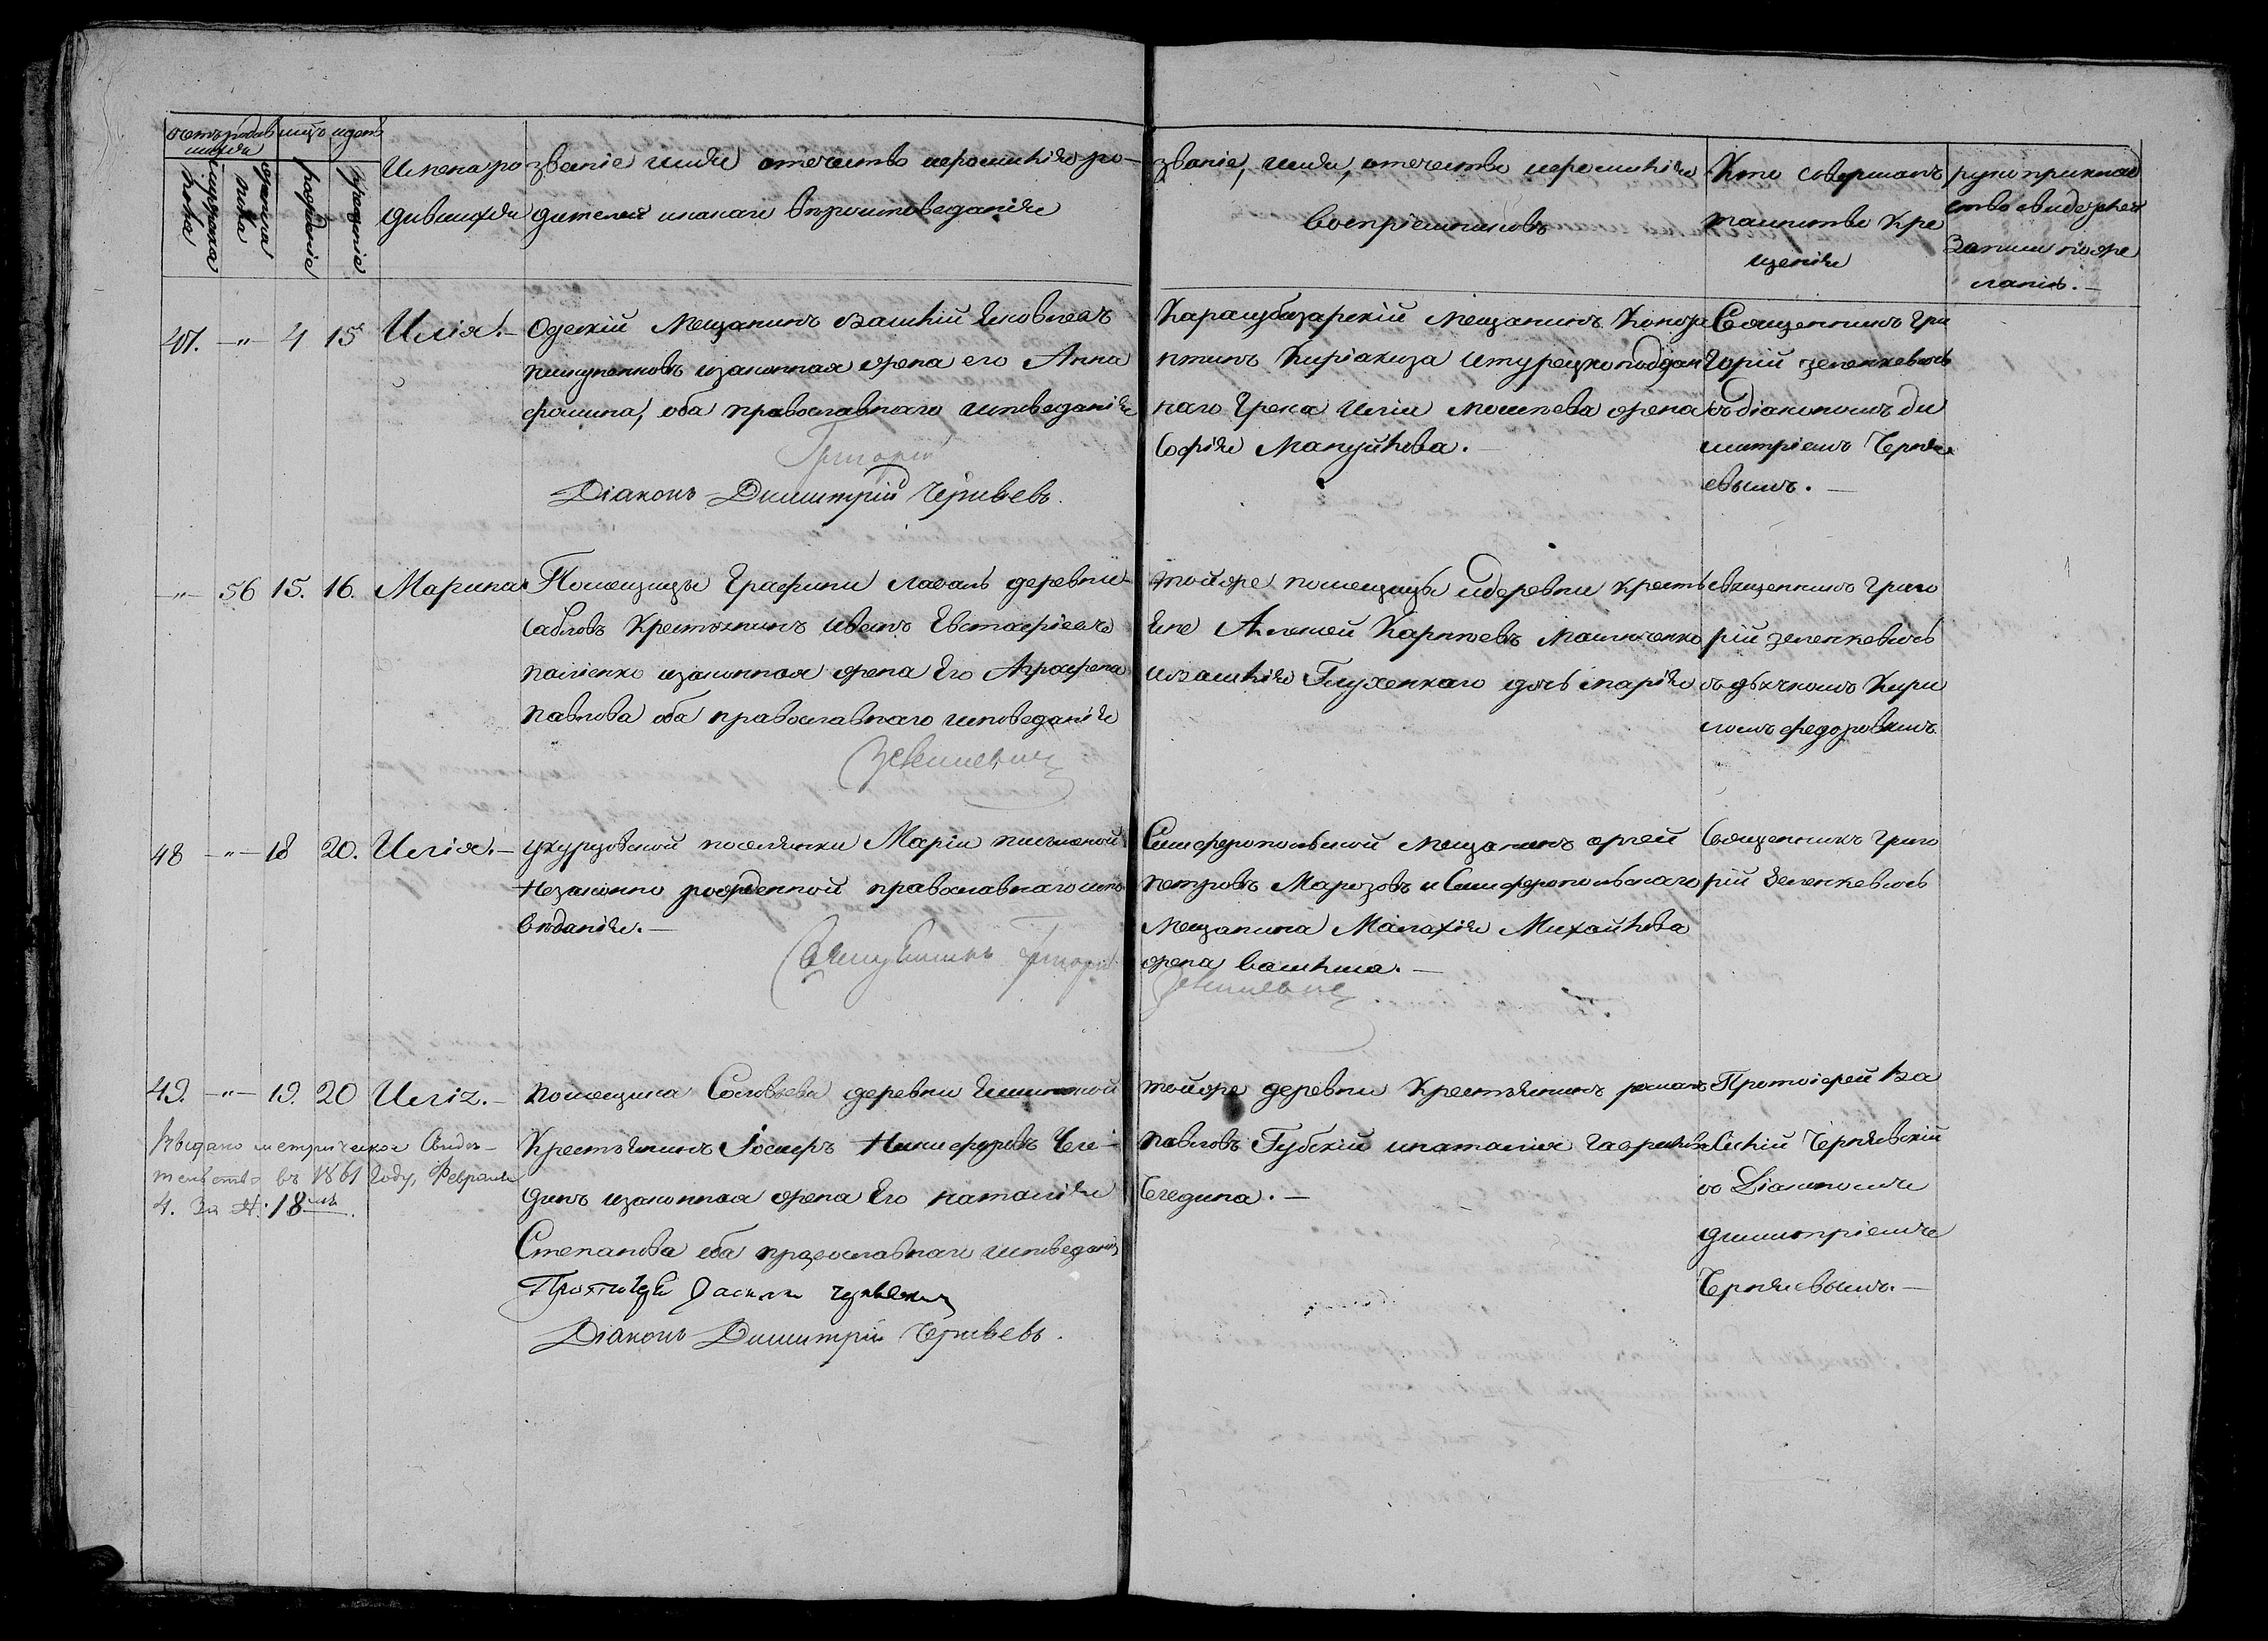 счетъ родив
шихся
мѣсяцъ и день
мужеска
пола
женска
пола
рожденія
крещенія
Имена ро
дившихся
званіе имя отечество и фамилія ро-
дителей и какаго вѣроисповеданія
званіе, имя, отечество и фамилія
воспріемниковъ
Кто совершалъ
таинство Кре
щенія
руко приклад
ство свидетелей
записи по же
ланію.
47. -"- 4 15 Илія.-
Одескій Мещанинъ Василій Яковлевъ
законная жена его Анна
Фомина, оба православнаго исповеданія
Григорій
Діаконъ Димитрій Черняевъ.
Карасубазарскій мещанинъ Конста
нтинъ и турецко поддан
наго Грека Иліи жена
Софія Мануйлова.-
Священникъ Гри
горій Зенкевичь
съ діакономъ Ди
митріемъ Черня
евымъ.-
-"- 56 15. 16. Марина
Помещицы Графини Лаваль деревни
Сабловъ Крестьянинъ Иванъ Евстафіевъ
законная жена Его Агрофена
Павлова оба православнаго исповеданія
Зенкевичь
тойже помещицы и деревни кресть
яне Алексей Карповъ
и Василія Глухенкаго дочь Марія
священникъ Григо
рій Зенкевичь
съ дьячкомъ Кири
ломъ Федоровымъ
48 -"- 18 20. Илія.-
поселянки Маріи
Незаконно рожденной православнаго испо
вѣданія.-
Священникъ Григорій
Симферопольской Мещанинъ
Петровъ Марозовъ и Симферопольскаго
Мещанина Малахія Михайлова
жена Василиса.-
Зенкевичь
Священникъ Григо
рій Зенкевичь
49. -"- 19. 20 Илія.-
Помещика Соловьева деревни
Крестьянинъ Іосифъ Никифоровъ Чеге-
динъ законная жена Его Наталія
Степанова оба православнаго исповеданія
Протоіерей Василій Чернявскій
Діаконъ Димитрій Черняевъ.
Выдано метрическое Свиде-
тельство въ 1861 Году, Февраля
4. За №. 18мъ.
тойже деревни Крестьянинъ Романъ
Павловъ Губскій и Наталія Гаврилова
Чегедина.-
Протоіерей Ва
силій Чернявскій
со Діакономъ
Димитріемъ
Черняевымъ.-